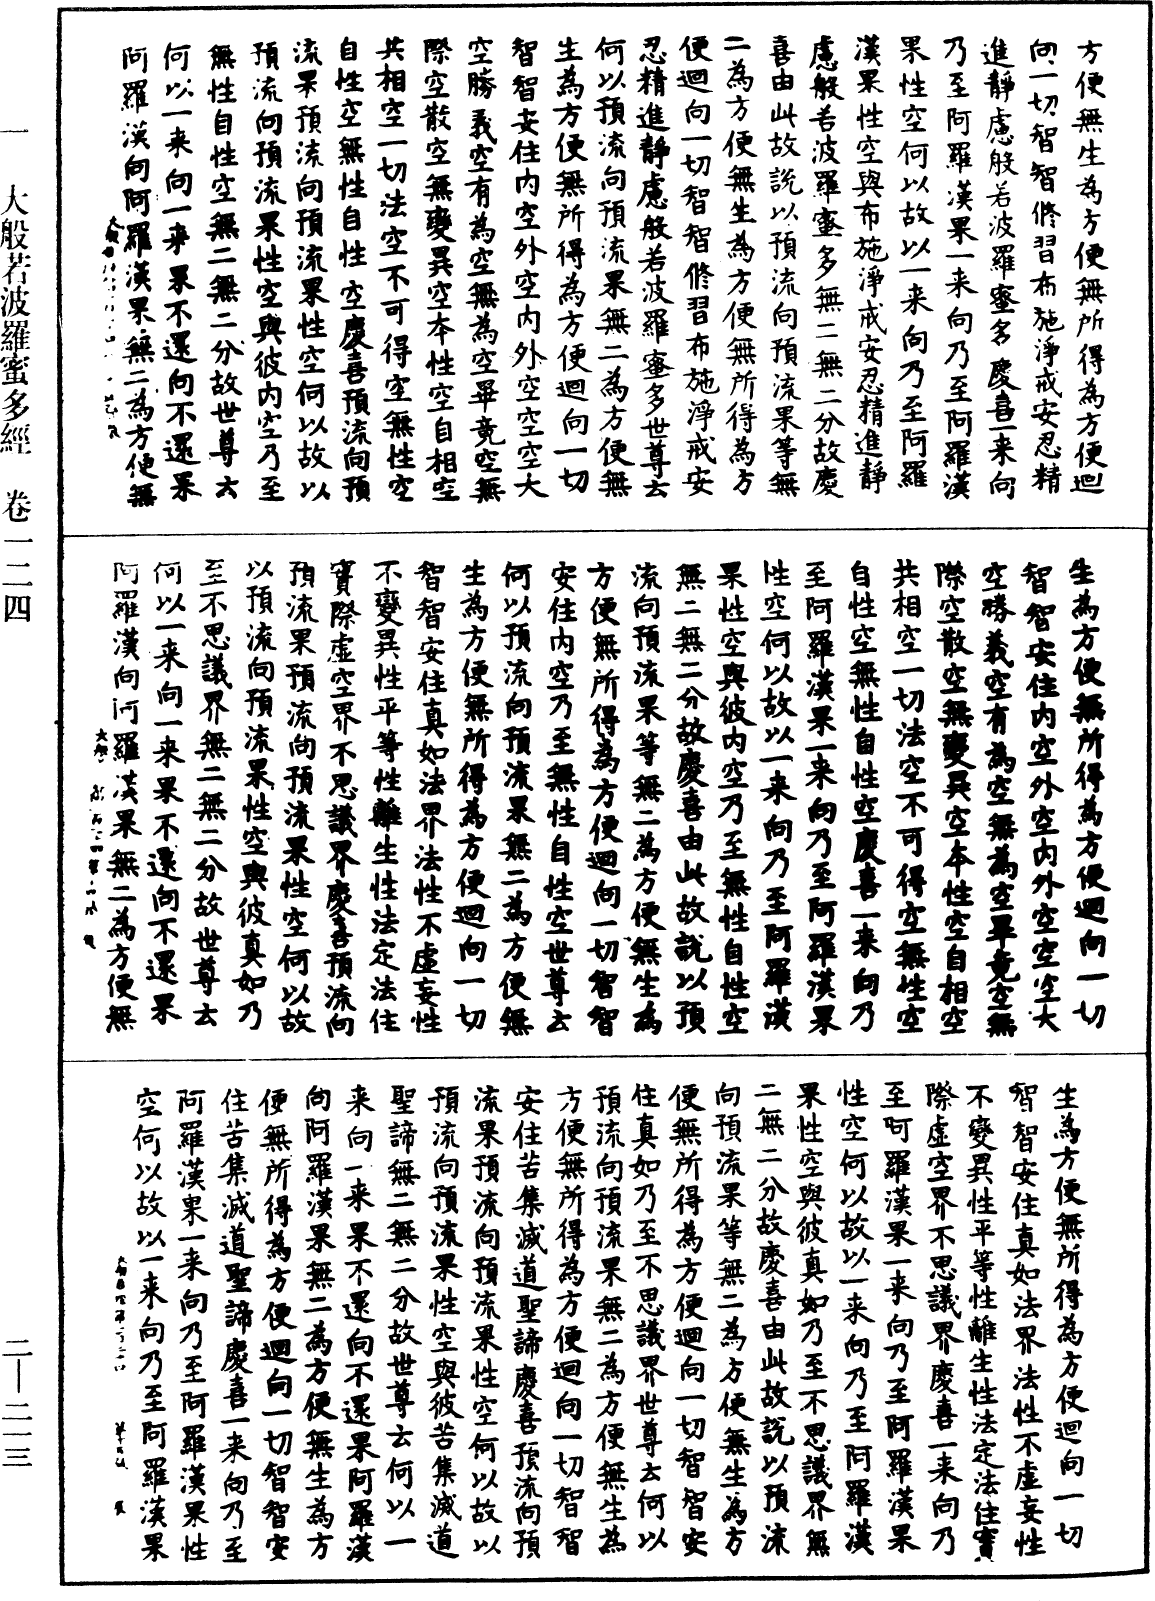 方便無生為方便無所得為方便迴
向一切智智修習布施淨戒安忍精
進靜慮般若波羅蜜多慶喜一来向
乃至阿羅漢果一来向乃至阿羅漢
果性空何以故以一来向乃至阿羅
漢果性空與布施淨戒安忍精進靜
慮般若波羅蜜多無二無二分故慶
喜由此故說以預流向預流果等無
二為方便無生為方便無所得為方
便迴向一切智智修習布施淨戒安
忍精進靜慮般若波羅蜜多世尊云
何以預流向預流果無二為方便無
生為方便無所得為方便迴向一切
智智安住内空外空内外空空空大
空勝義空有為空無為空畢竟空無
際空散空無變異空本性空自相空
共相空一切法空不可得空無性空
自性空無性自性空慶喜預流向預
流果預流向預流果性空何以故以
預流向預流果性空與彼内空乃至
無性自性空無二無二分故世尊云
何以一来向一来果不還向不還果
阿羅漢向阿羅漢果無二為方便無
生為方便無所得為方便迴向一切
智智安住内空外空内外空空空大
空勝義空有為空無為空畢竟空無
際空散空無變異空本性空自相空
共相空一切法空不可得空無性空
自性空無性自性空慶喜一来向乃
至阿羅漢果一来向乃至阿羅漢果
性空何以故以一来向乃至阿羅漢
果性空與彼内空乃至無性自性空
無二無二分故慶喜由此故說以預
流向預流果等無二為方便無生為
方便無所得為方便迴向一切智智
安住内空乃至無性自性空世尊云
何以預流向預流果無二為方便無
生為方便無所得為方便迴向一切
智智安住真如法界法性不虛妄性
不變異性平等性離生性法定法住
實際虛空界不思議界慶喜預流向
預流果預流向預流果性空何以故
以預流向預流果性空與彼真如乃
至不思議界無二無二分故世尊云
何以一来向一来果不還向不還果
阿羅漢向阿羅漢果無二為方便無
生為方便無所得為方便迴向一切
智智安住真如法界法性不虛妄性
不變異性平等性離生性法定法住實
際虛空界不思議界慶喜一来向乃
至阿羅漢果一来向乃至阿羅漢果
性空何以故以一来向乃至阿羅漢
果性空與彼真如乃至不思議界無
二無二分故慶喜由此故說以預流
向預流果等無二為方便無生為方
便無所得為方便迴向一切智智安
住真如乃至不思議界世尊云何以
預流向預流果無二為方便無生為
方便無所得為方便迴向一切智智
安住苦集滅道聖諦慶喜預流向預
流果預流向預流果性空何以故以
預流向預流果性空與彼苦集滅道
聖諦無二無二分故世尊云何以一
来向一来果不還向不還果阿羅漢
向阿羅漢果無二為方便無生為方
便無所得為方便迴向一切智智安
住苦集滅道聖諦慶喜一来向乃至
阿羅漢果一来向乃至阿羅漢果性
空何以故以一来向乃至阿羅漢果
一 大般若波羅蜜多經 卷一二四
二—二一三